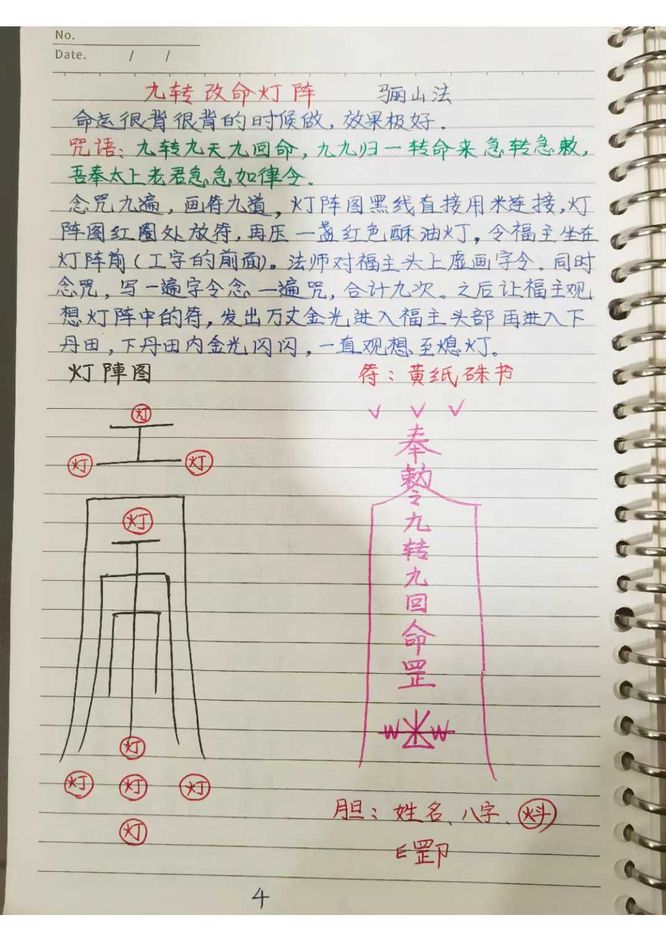 No.
Date. / /
九转改命灯阵 骊山法
命运很背很背的时候做，效果极好.
咒语：九转九天九回命，九九归一转命来急转急敕，
吾奉太上老君急急如律令.
念咒九遍，画符九道，灯阵图黑线直接用米连接，灯
阵图红圈处放符，再压一盏红色酥油灯，令福主坐在
灯阵前（工字的前面）。法师对福主头上虚画字令，同时
念咒，写一遍字令念一遍咒，合计九次。之后让福主观
想灯阵中的符，发出万丈金光进入福主头部再进入下
丹田，下丹田内金光闪闪，一直观想至熄灯。
灯陣图 符：黄纸硃书
灯
灯 灯
灯
灯
灯 灯 灯
灯
奉
敕
令
九
转
九
回
命
罡
胆：姓名、八字、
4